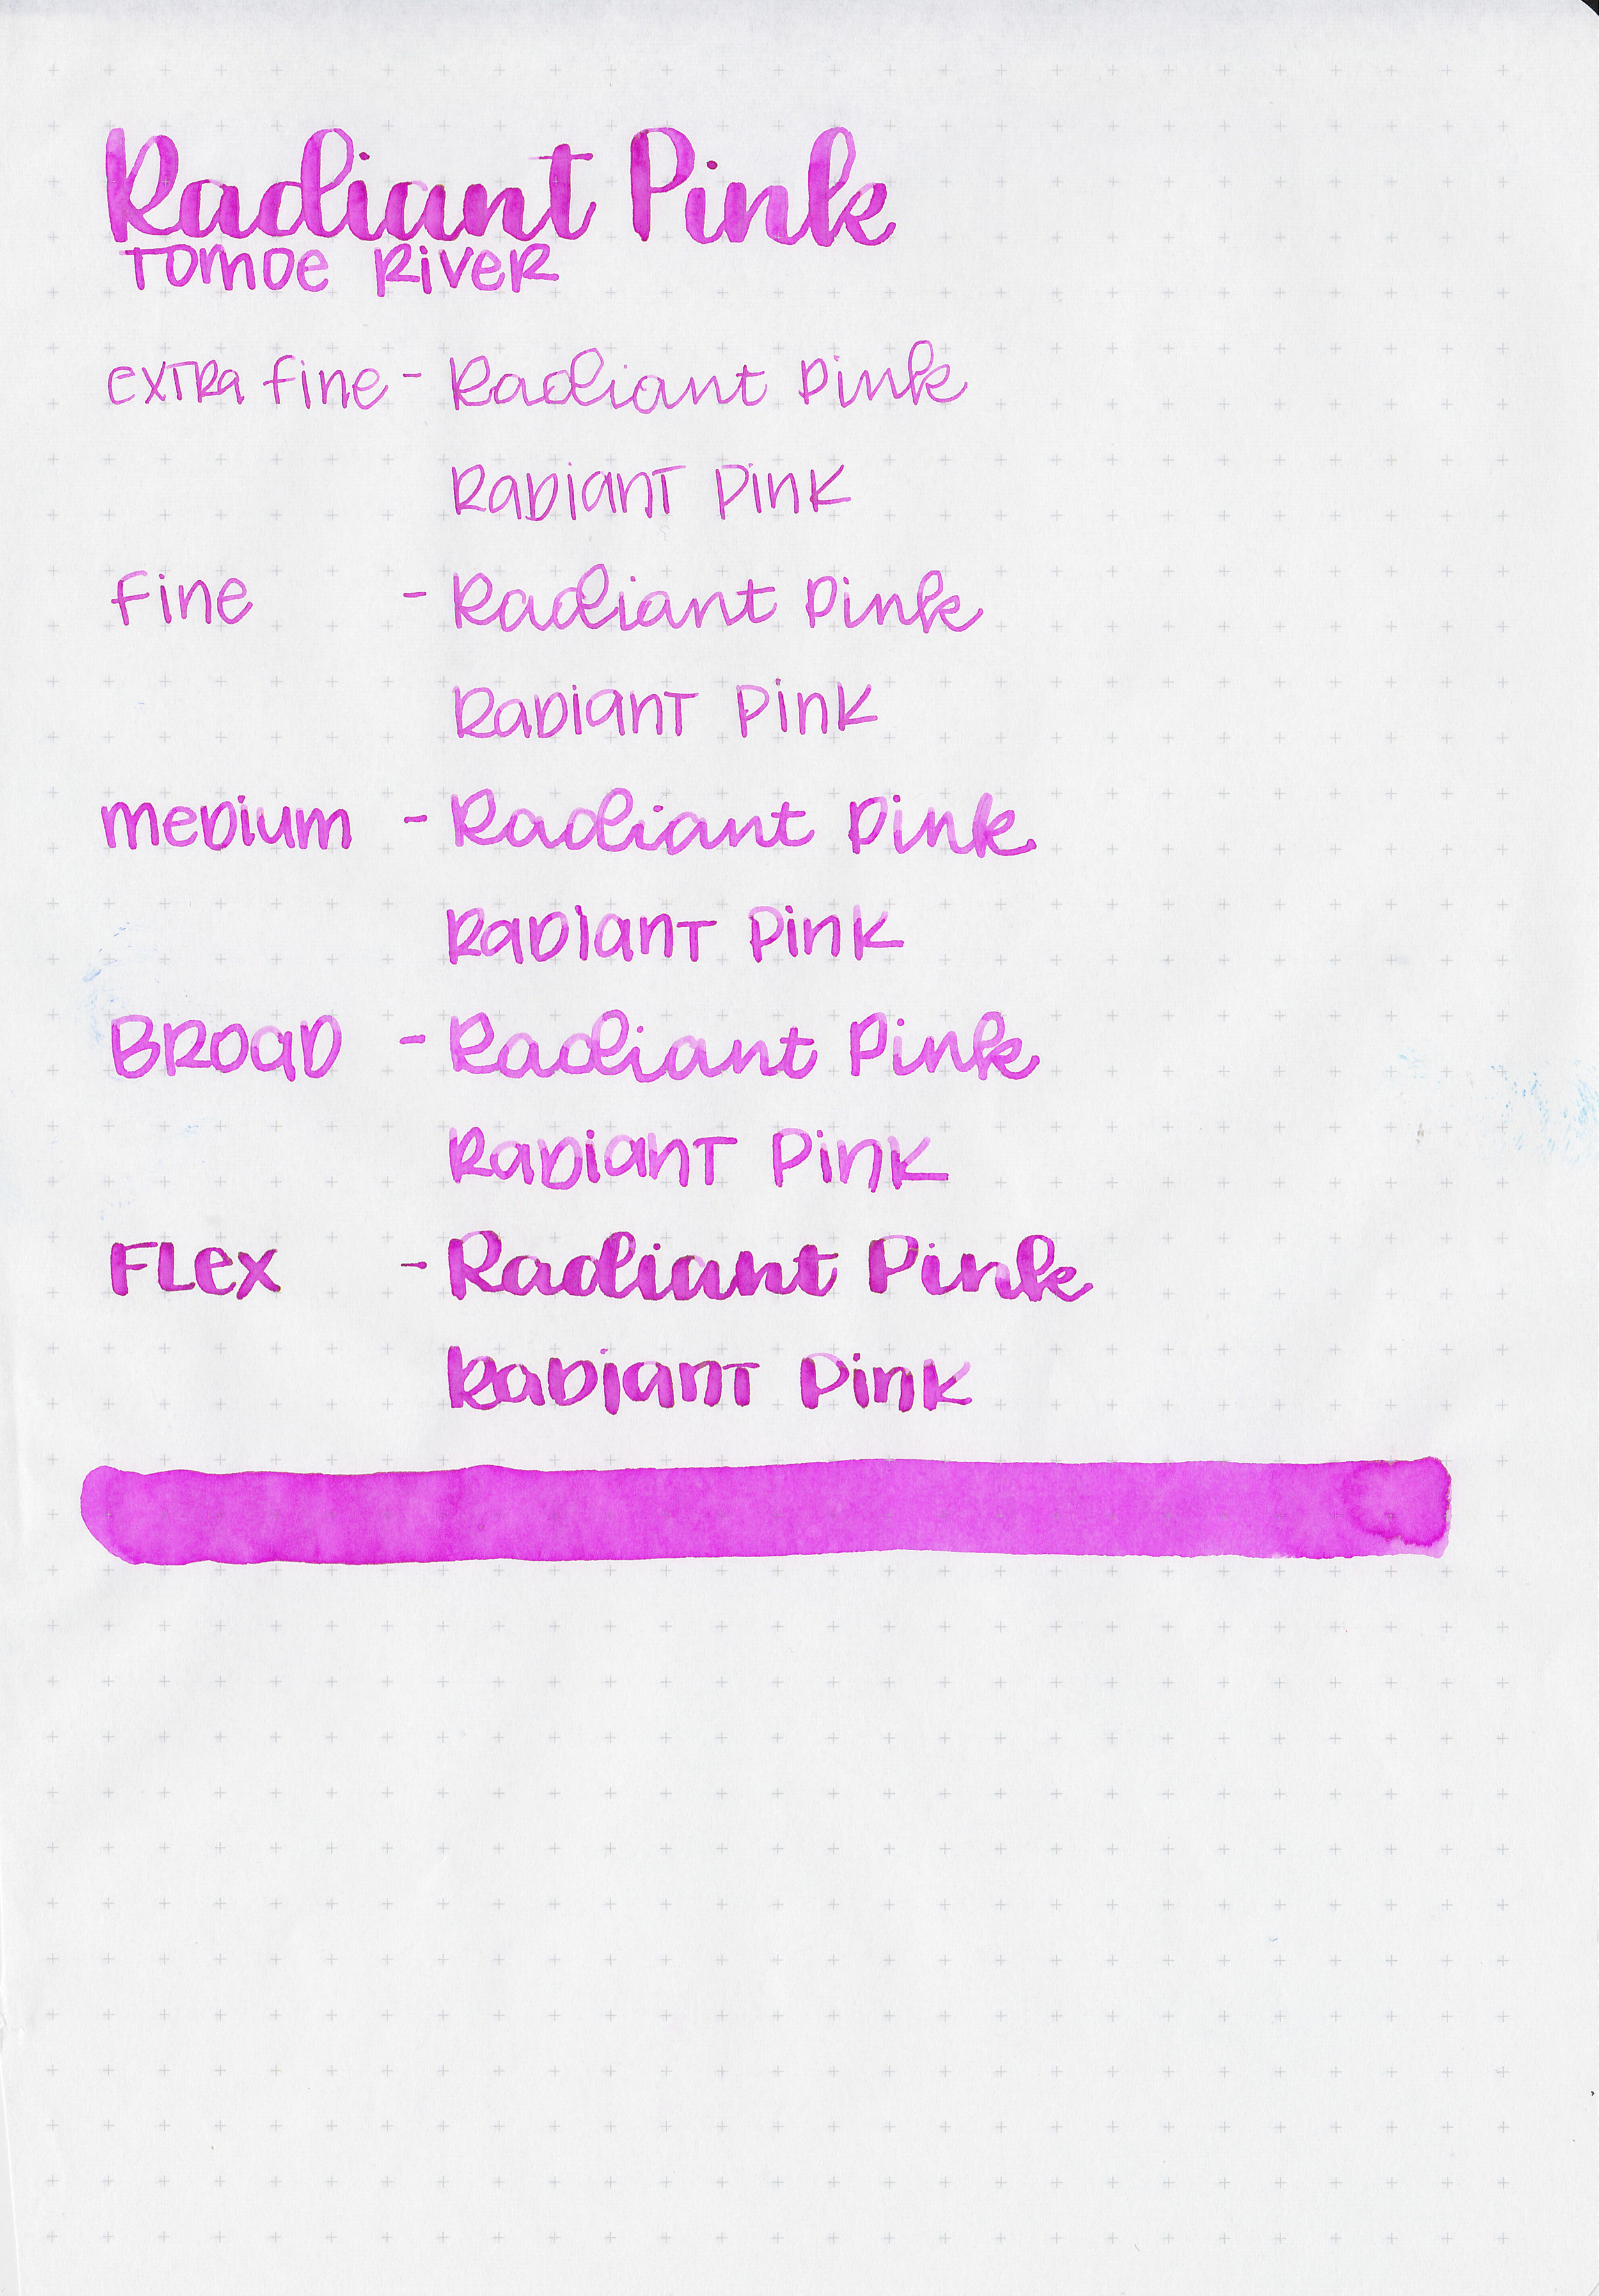 Radiant Pink
Tomoe River
extra fine - Radiant Pink
Radiant Pink
Fine - Radiant Pink
Radiant Pink
medium - Radiant Pink
Radiant Pink
Broad - Radiant Pink
Radiant Pink
Flex - Radiant Pink
Radiant Pink